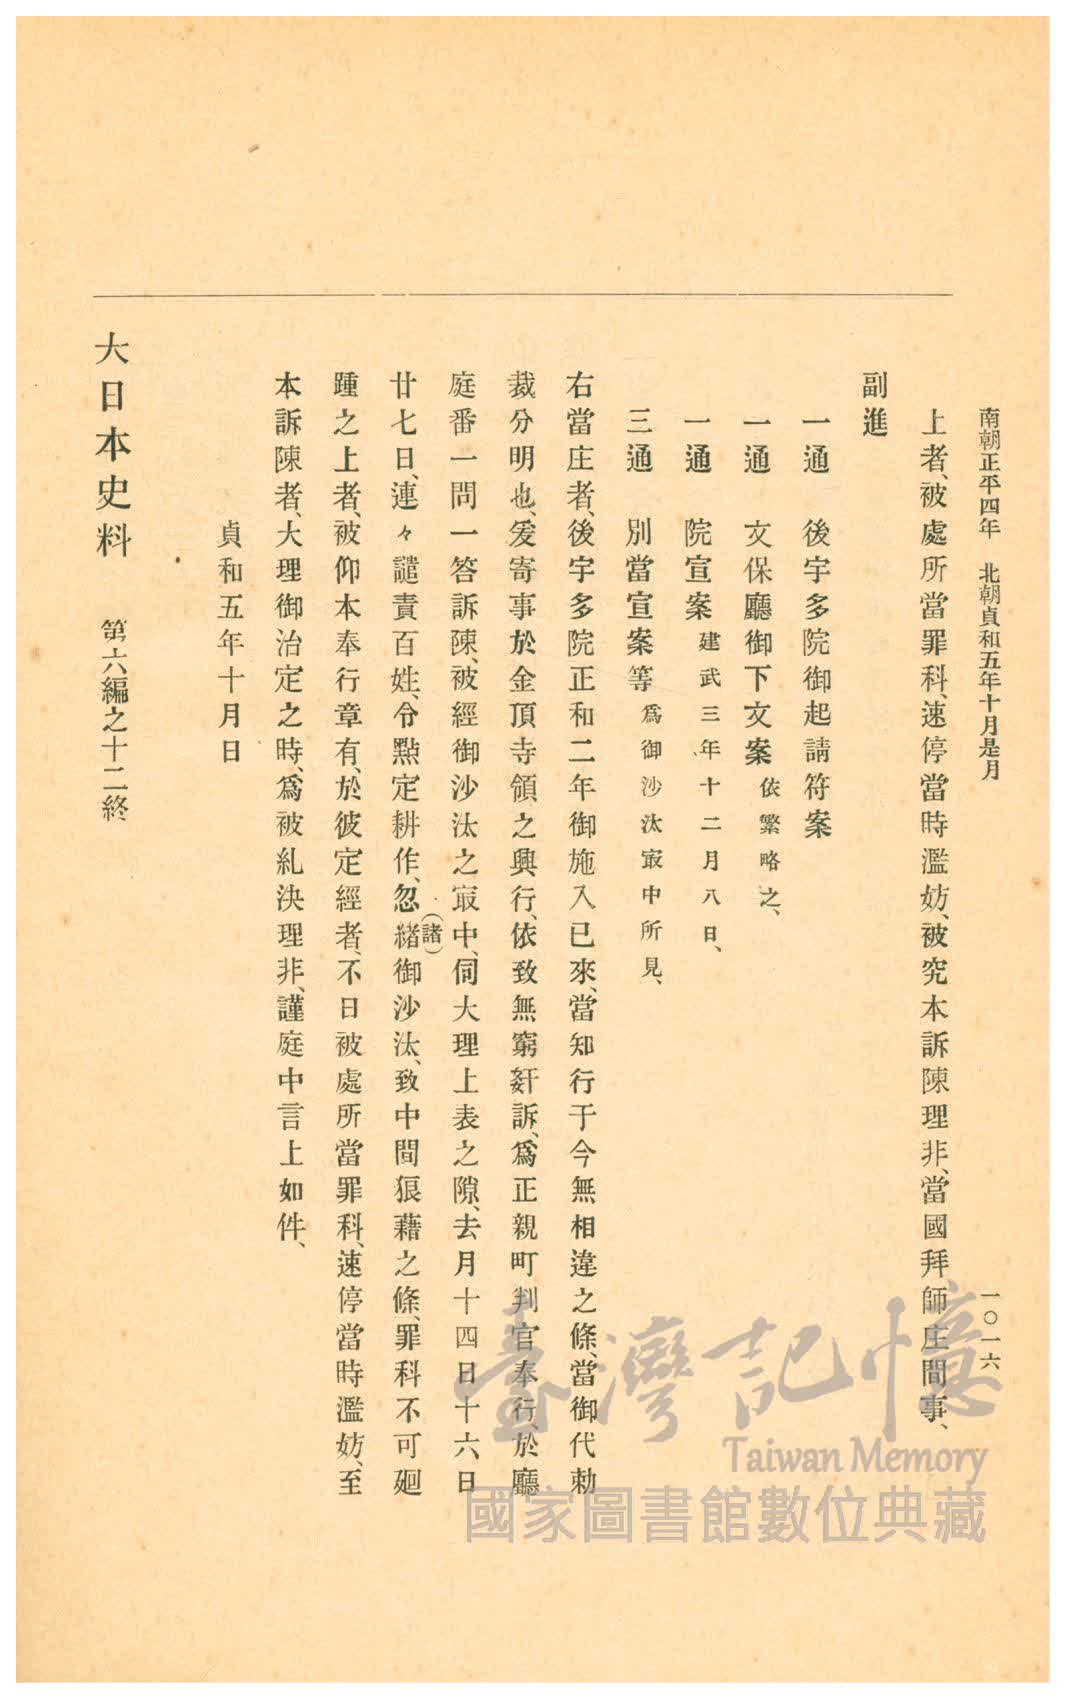 南朝正平四年 北朝貞和五年十月是月
一〇一六
上者、被處所當罪科、速停當時濫妨、被究本訴陳理非、當國拜師庄間事、
副進
一通 後宇多院御起請符案
一通 文保廳御下文案 依繁略之、
一通 院宣案 建武三年十二月八日、
三通 別當宣案等 爲御沙汰冣中所見、
右當庄者、後宇多院正和二年御施入已來、當知行于今無相違之條、當御代勅
裁分明也、爰寄事於金頂寺領之興行、依致無窮姧訴、爲正親町判官奉行、於廳
庭番一問一答訴陳、被經御沙汰之冣中、伺大理上表之隙、去月十四日十六、日
廿七日、連々譴責百姓、令點定耕作、忽緒(諸)御沙汰、致中間狼藉之條、罪科不可廻
踵之上者、被仰本奉行章有、於彼定經者、不日被處所當罪科、速停當時濫妨、至
本訴陳者、大理御治定之時、爲被糺決理非、謹庭中言上如件、
貞和五年十月日
大日本史料 第六編之十二終
臺灣記憶
Taiwan Memory
國家圖書館數位典藏